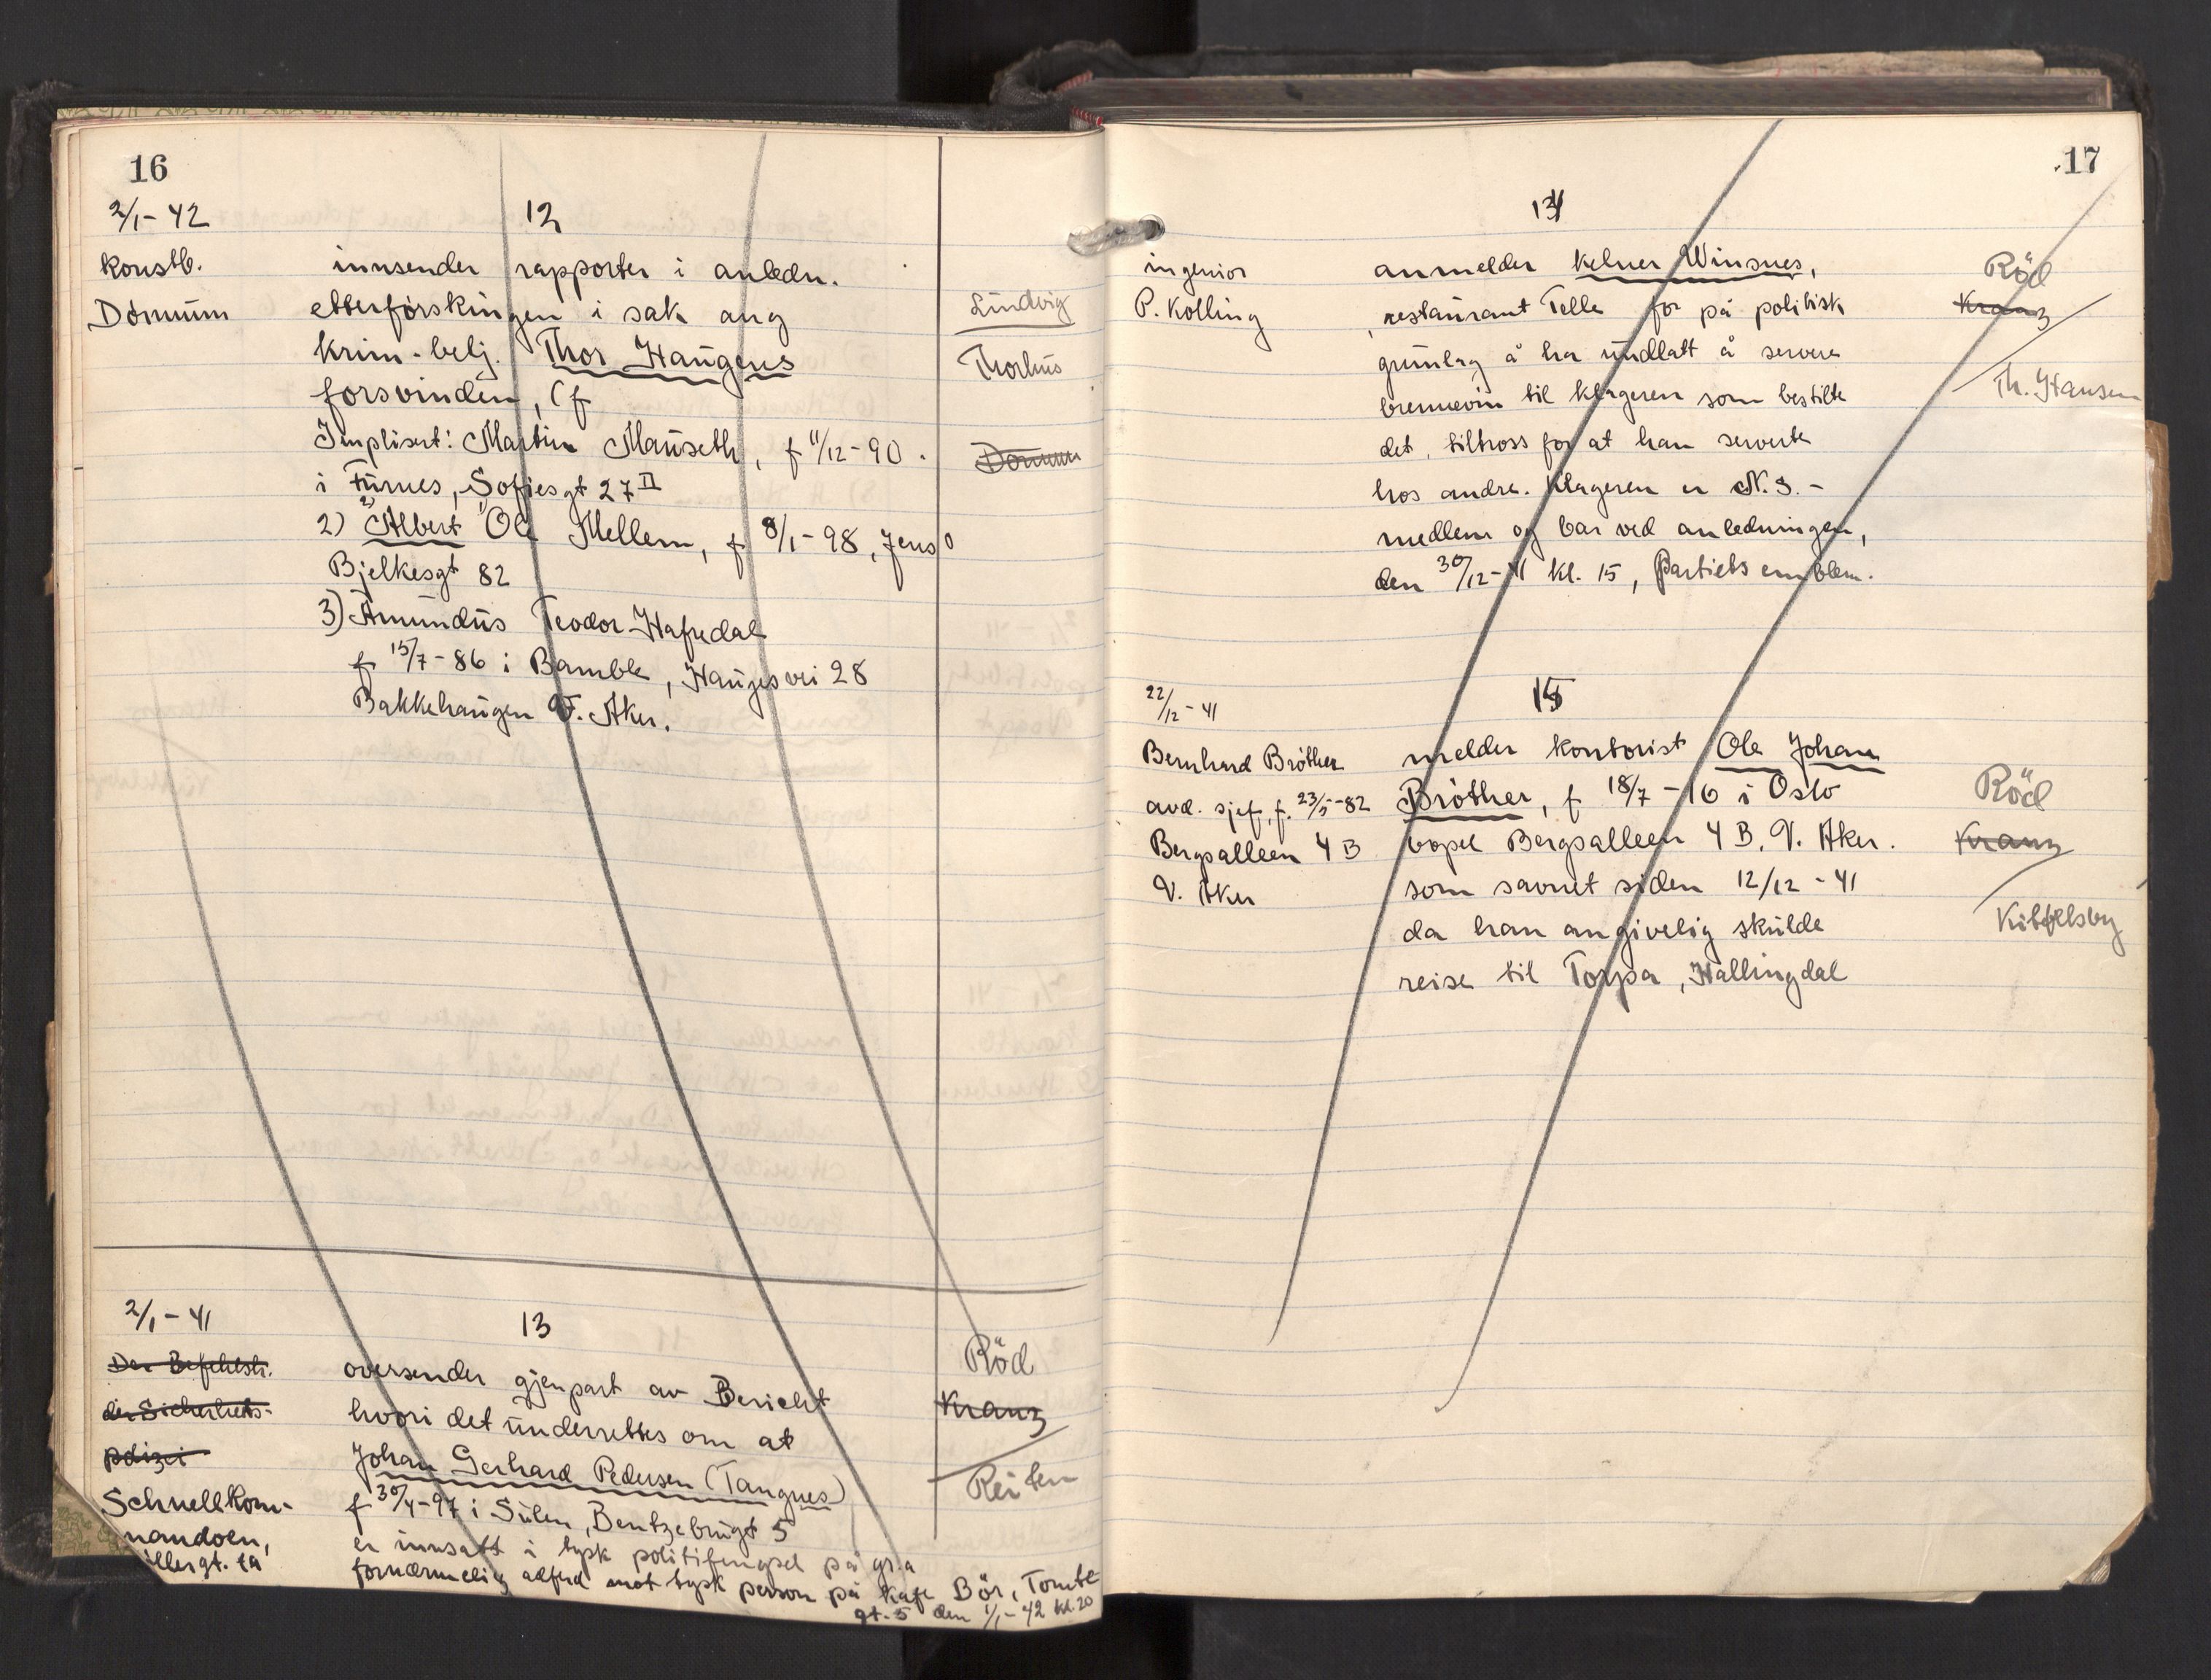 16
2/1 - 42
12
Konstb.
Dømmum
innsender rapporter i anledn.
etterforskingen i sak ang
krim-betj. Thor Haugens
forsvinden, (f
Implisert: Martin Mauseth, f 11/12-90.
i Furnes, Sofiesgt 27 II
2) Albert Ole Mellem, f 8/1-98, Jens
Bjelkesgt 82
3) Amundus Teodor Hafredal
f 15/7-86 i Bamble, Haugesvei 28
Bakkehaugen V. Aker.
Lindvig
Thorhus
2/1 - 41
13
Der Befehlsh.
der Sicherheits-
polizei
Schnellkom-
mandoen,
illergt. 1a
oversender gjenpart av Bericht
hvori det underrettes om at
Johan Gerhard Pedersen (Tangnes)
f 30/4-97 i Sulen, Bentzebrugt 5
er innsatt i tysk politifengsel på gr.a
fornærmelig adferd mot tysk person på kafe Bör, Tomte
gt. 5 den 1/1-42 kl. 20
Röd
Kranz
Reiten
17
14
ingeniør
P. Kolling
anmelder kelner Winsnes,
restaurant Telle for på politisk
grunlag å ha undlatt å servere
brennevin til klageren som bestilte
det, tiltross for at han serverte
hos andre. Klageren er N.S.-
medlem og bar ved anledningen,
den 30/12-41 kl. 15, Partiets emblem.
Röd
Kranz
Th. Hansen
22/12-41
15
Bernhard Bröther
avd. sjef, f. 23/5-82
Bergsalleen 4 B
V. Aker
melder kontorist Ole Johan
Bröther, f 18/7-16 i Oslo
bopel Bergsalleen 4 B, V. Aker.
som savnet siden 12/12-41
da han angivelig skulde
reise til Torpa, Hallingdal
Röd
Kranz
Kittelsby